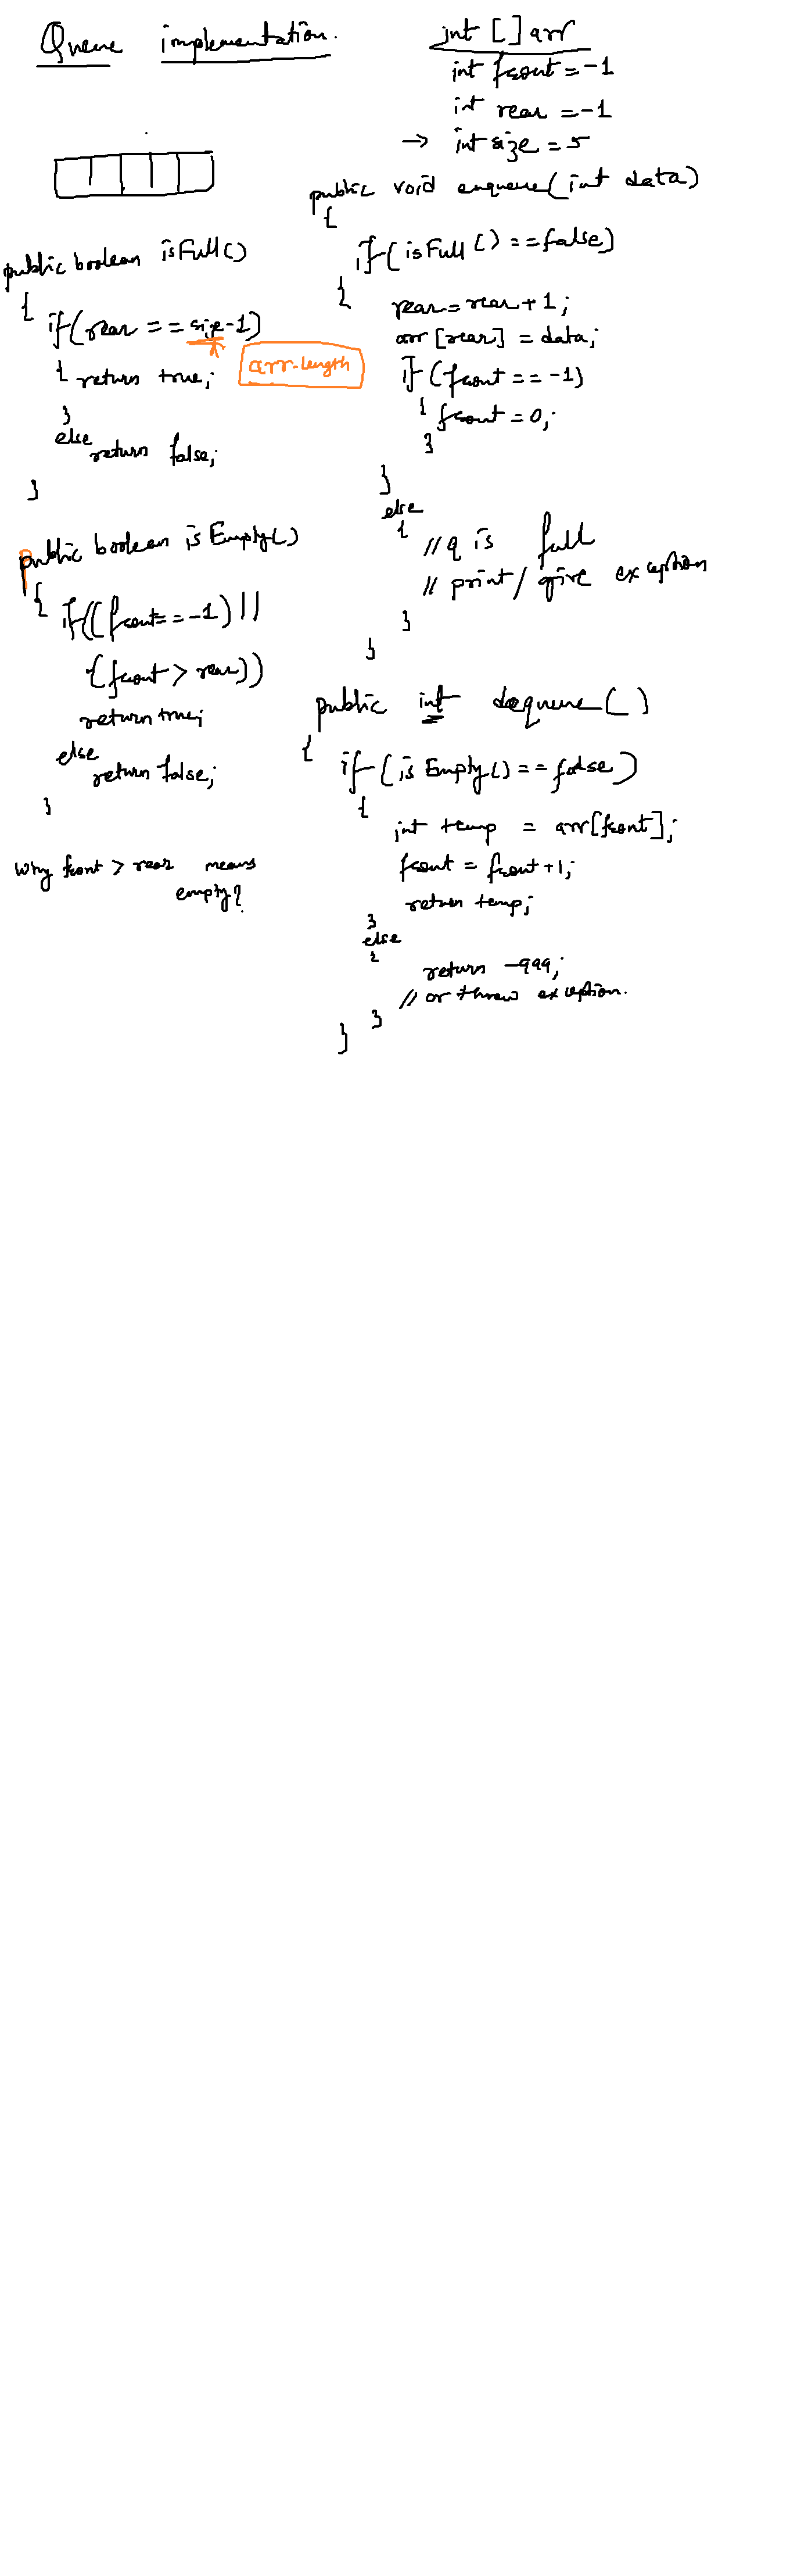 Queue implementation.
int [] arr
int front = -1
int rear = -1
→ int size = 5
public boolean isFull()
{
if(rear == size-1)
arr.length
{ return true;
}
else
return false;
}
public boolean isEmpty()
{
if((front == -1) ||
(front > rear))
return true;
else
return false;
}
Why front > rear means
empty?
public void enqueue(int data)
{
if(isFull() == false)
{
rear = rear + 1;
arr[rear] = data;
if(front == -1)
{ front = 0;
}
}
else
{
// q is full
// print/ give exception
}
}
public int dequeue()
{
if(isEmpty() == false)
{
int temp = arr[front];
front = front + 1;
return temp;
}
else
{
return -999;
// or throw exception.
}
}